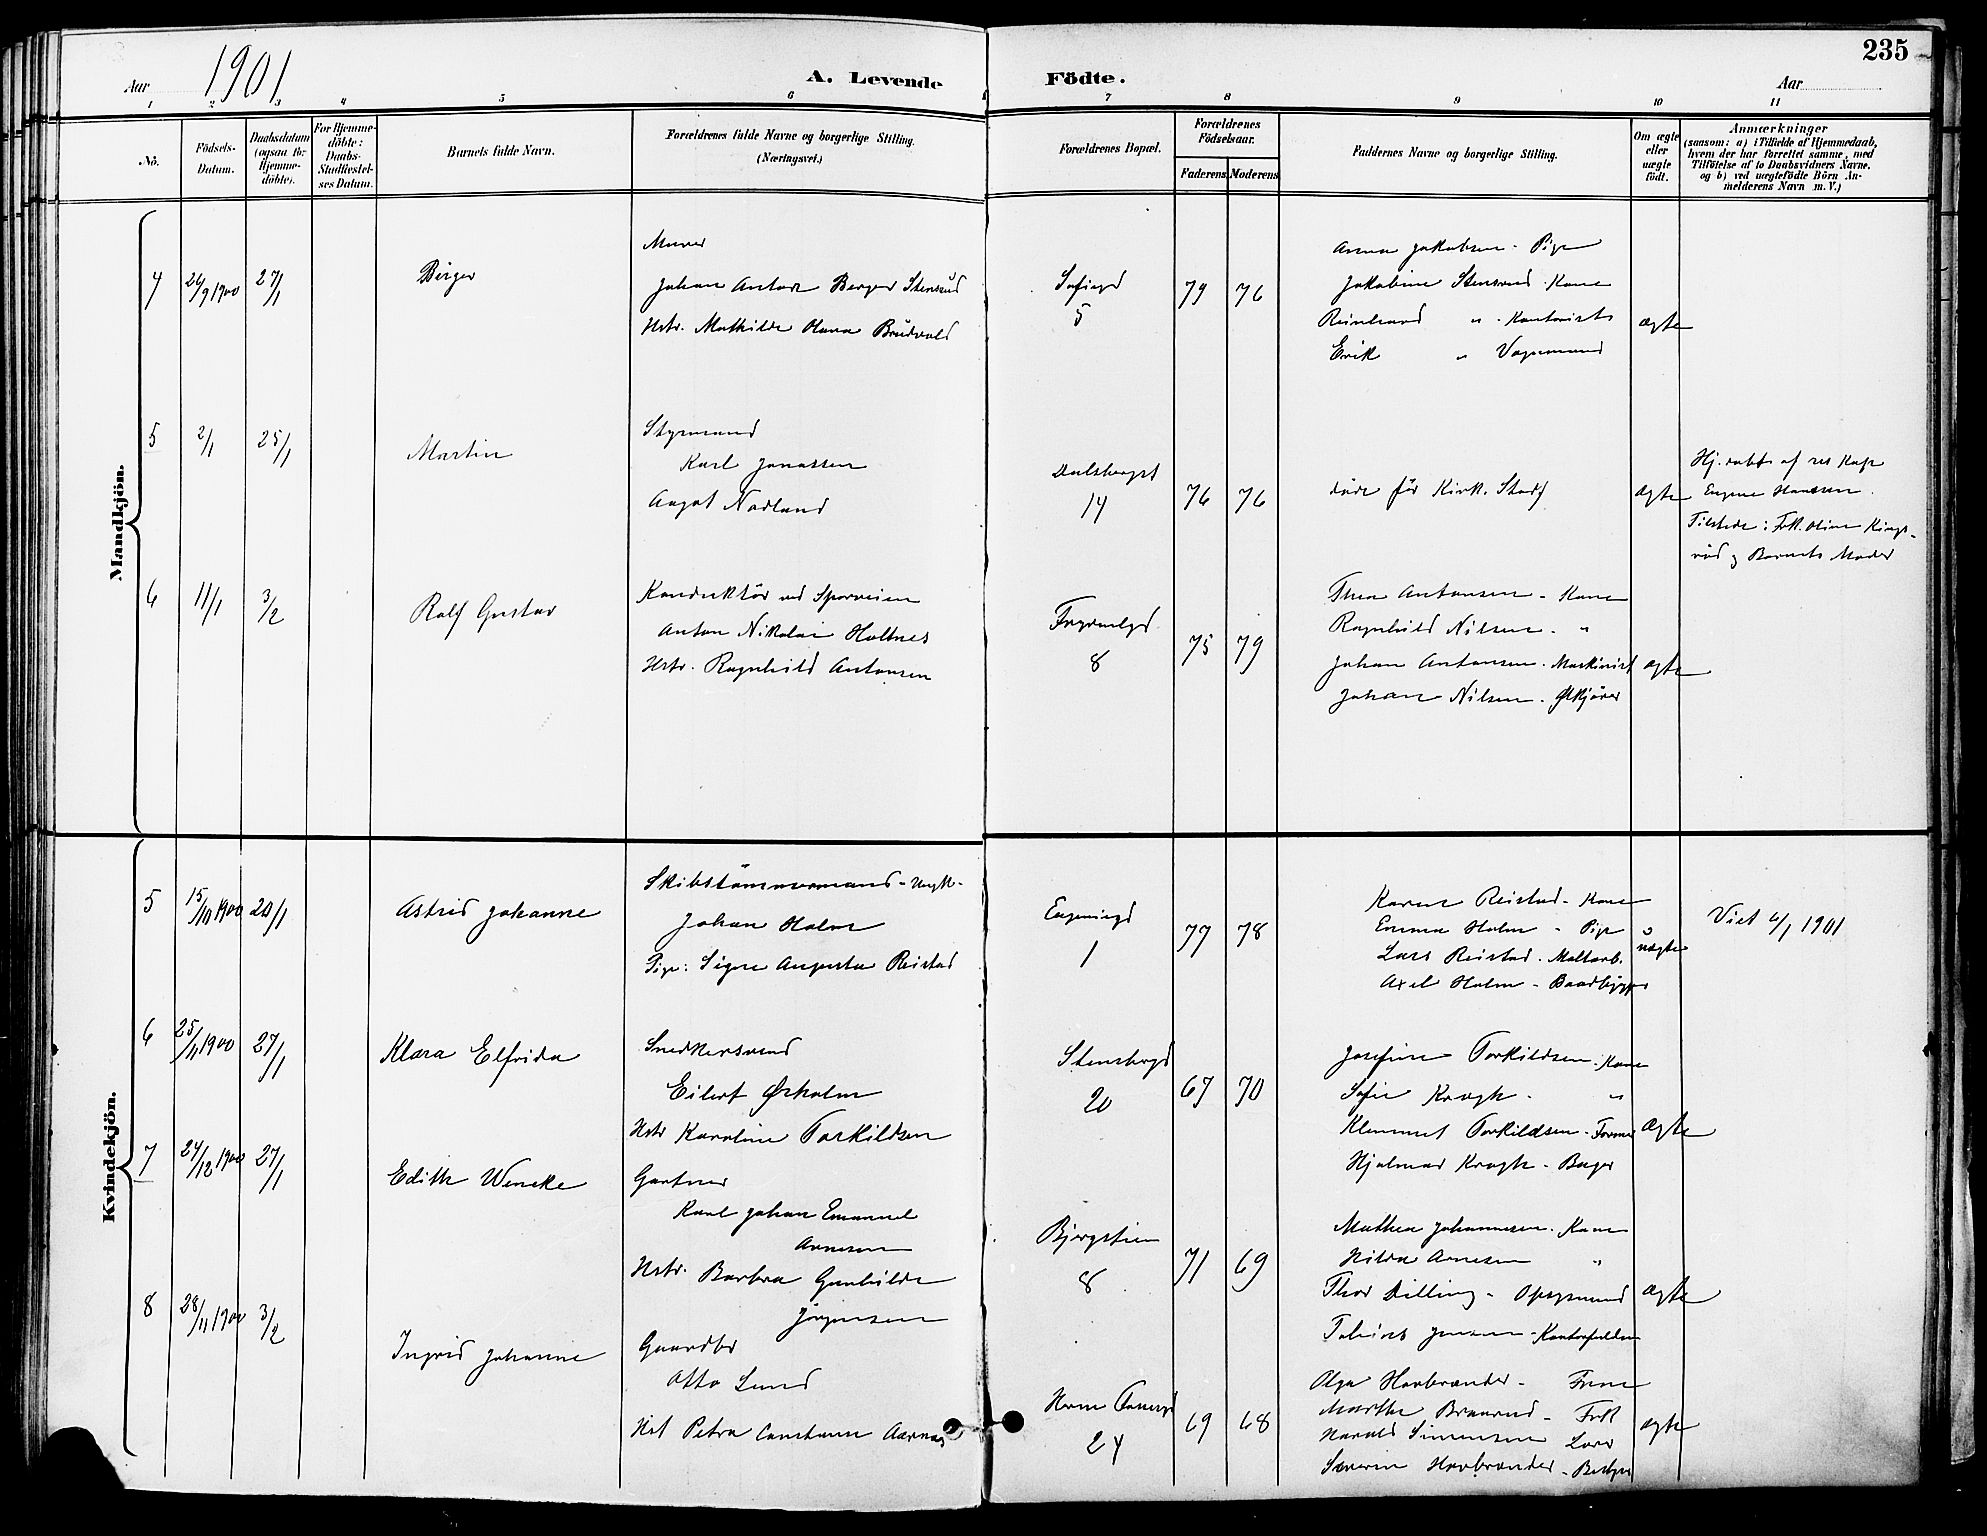 235
Aar 1901
A. Levende Födte.
Aar
1 2 3 4 5 6 7 8 9 10 11
Nô.
Födsels-
Datum.
Daabsdatum
(ogsaa for
Hjemme-
döbte).
For Hjemme-
döbte:
Daabs-
Stadfæstel-
ses Datum.
Barnets fulde Navn.
Forældrenes fulde Navne og borgerlige Stilling.
(Næringsvei.)
Forældrenes Bopæl.
Forældrenes
Födselsaar.
Faderens Moderens
Faddernes Navne og borgerlige Stilling.
Om ægte
eller
uægte
födt.
Anmærkninger
(saasom: a) i Tilfælde af Hjemmedaab,
hvem der har forrettet samme, med
Tilföielse af to Daabsvidners Navne.
og b) ved uægtefödte Börn An-
melderens Navn m. V.)
Mandkjön.
4 26/9 1900 27/1 Birger
Murer
Johan Anton Berger Stensrud
Hstr. Mathilde Olava Brudvold
Sofiegd
5
79 76
Anna Jakobsen - Pige
Jakobine Stensrud - Kone
Reinhard " - Kontorist
Erik " Vognmand
ægte
5 2/1 25/1 Martin
Styrmand
Karl Jonassen
Aagot Nodland
Dalsbergst
14
76 76
döde för Kirk. Stadf
ægte
Hj. döbt af res Kap
Eugene Hanssen.
Tilstede: Frk. Oline Kings-
rød og Barnets Moder
6 11/1 3/2 Rolf Gustav
Konduktör ved Sporveien
Anton Nikolai Holtnes
Hstr. Ragnhild Antonsen
8
75 79
Thea Antonsen - Kone
Ragnhild Nilsen - "
Johan Antonsen - Maskinist
Johan Nilsen - Ølkjører
ægte
Kvindekjön.
5 15/10 1900 20/1 Astrid Johanne
Skibstömmermand - Ungk.
Johan Holm
Pige: Signe Augusta Reistad
Eugeniegd
1
77 78
Karen Reistad - Kone
Emma Holm - Pige
Lars Reistad - Maltarb.
Axel Holm - Baadbygger
uægte
Viet 6/1 1901
6 25/11 1900 27/1 Klara Elfrida
Snedkersvend
Eilert Ørholm
Hstr Karoline Torkildsen
Stensbergd
20
67 70
Josefine Torkildsen - Kone
Sofie Krogh - "
Klemmet Torkildsen - Former
Hjalmar Krogh - Bager
ægte
7 24/12 1900 27/1 Edith Wencke
Gartner
Karl Johan Emanuel
Arnesen
Hstr. Barbra Gunhilde
Jörgensen
Bjergstien
8
71 69
Mathea Johannesen - Kone
Hilda Arnesen "
Thor Dilling - Opsynsmand
Tobias Jensen - Kontorfuldm
ægte
8 28/11 1900 3/2 Ingrid Johanne
Gaardbr
Otto Lund
Hst Petra Constance Aarnæs
24
69 68
Olga Havbrænder - Frue
Marthe Braarud - Frk
Harald Simensen Lærer
Severin Havbrænder - Bestyrer
ægte